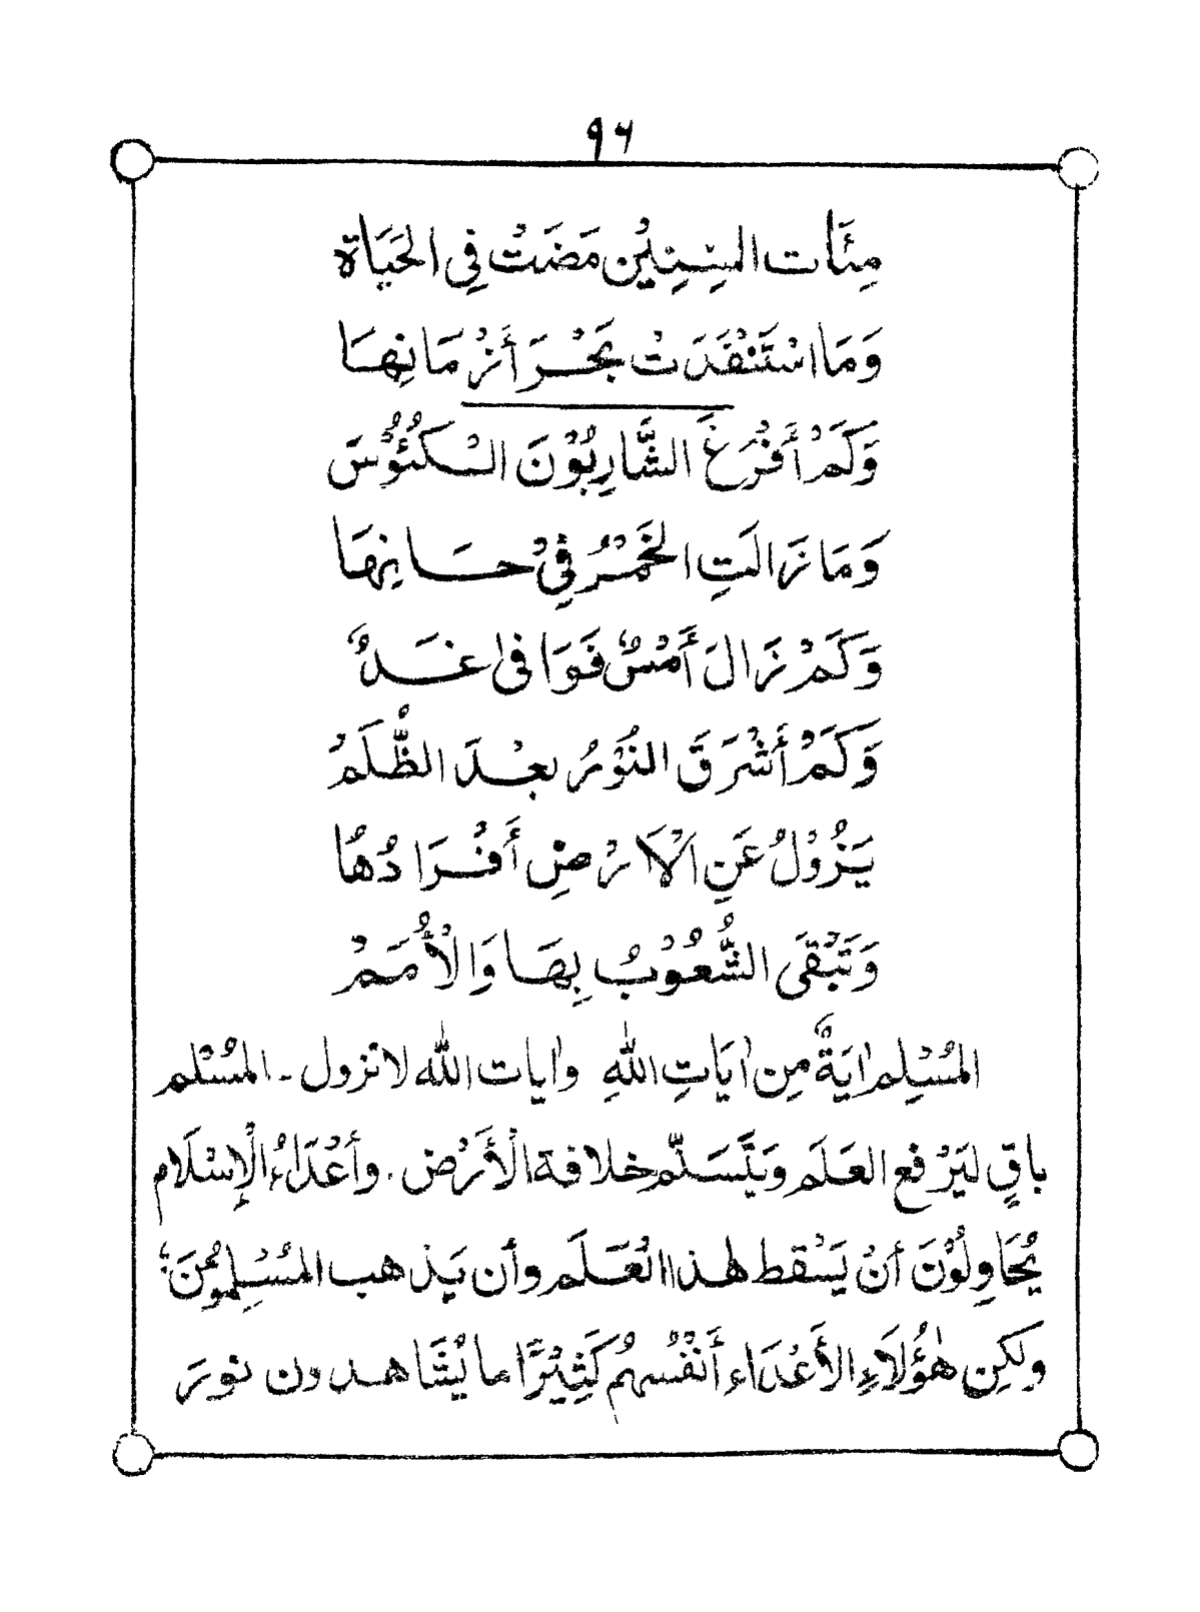 ٩٦
مِئَات السِنِيْن مَضَتْ فِي الحَيَاة
وَمَا اسْتَنْفَدَتْ بَحْرَ أَزْمَانِهَا
وَكَمْ أَفْرَغَ الشَّارِبُوْنَ الْكُئُوْسَ
وَمَا زَالَتِ الخَمْرُ فِيْ حَانِهَا
وَكَمْ زَالَ أَمْسٌ فَوَافىٰ غَدٌ
وَكَمْ أَشْرَقَ النُوْرُ بعْدَ الظُّلَمْ
يَزُوْلُ عَنِ الْاَرْضِ أَفْرَادُهَا
وَتَبْقَى الشُّعُوْبُ بِهَا وَالْأُمَمْ
المُسْلِم اٰيَةٌ مِن اٰيَاتِ اللّٰهِ واٰيات اللّٰه لا تزول ـ المُسْلم
باقٍ ليَرْفع العَلَم وَيَتَّسَلَّم خلافة الْأَرْض . وأعْدَاءُ الْإِسْلَام
يُحَاوِلُوْنَ أنْ يَسْقط هٰذا الْعَلَم وأن يَذهب المُسْلِمُونَ ؛
ولكِن هٰؤُلَاءِ الأَعْدَاء أَنْفُسهُم كَثِيْرًا ما يُشَاهدون نورَ